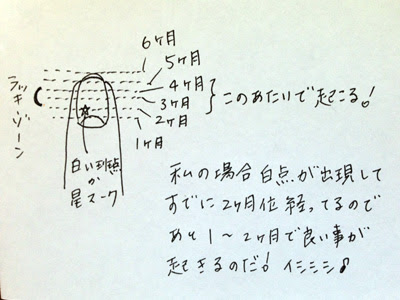 6ヶ月
5ヶ月
4ヶ月
3ヶ月
2ヶ月
1ヶ月
ラッキーゾーン
このあたりで起こる!
白い斑点
か
星マーク
私の場合白点が出現して
すでに2ヶ月位経ってるので
あと1〜2ヶ月で良い事が
起きるのだ!イシシシ♪